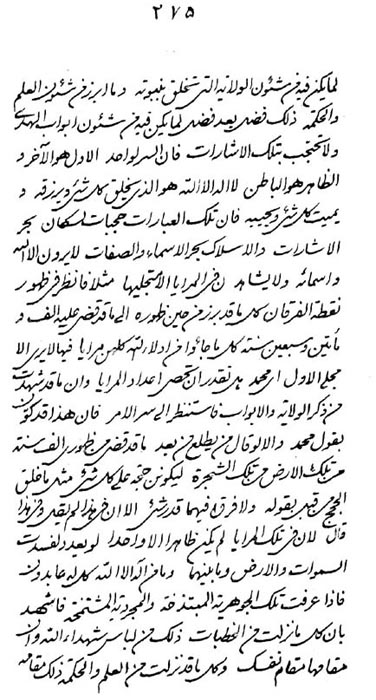 ۲۷۵
لما يمكن فيه من شئون الولاية التي تتخلق بنبوته و ما ابرز من شئون العلم
والحكمة ذلك فضل بعد فضل لما يمكن فيه من شئون ابواب الهدى
ولا تحتجب بتلك الاشارات فان السر لواحد الاول هو الآخر و
الظاهر هو الباطن لا اله الا الله هو الذي يخلق كل شئ ويرزقه و
يميت كل شئ ويحييه فان تلك العبارات حجبات لسكان بحر
الاشارات والا سلاك بحر الاسماء والصفات لا يرون الا الله
واسمائه ولا يشاهدن في المرايا الا متجليها مثلا فانظر في ظهور
نقطة الفرقان كل ما قد برز من حين ظهوره الى ما قد قضى عليه الف و
مأتين وسبعين سنة كل ما جائوا من ادلاء الله كلهن مرايا فيها لا يرى الا
مجلى الاول اى محمد بل تقدر ان تحصى اعداد المرايا وان ما قد شهدت
من ذكر الولاية والابواب فاستنظر الى سر الامر فان هذا قد كون
بقول محمد والا لو قال من يطلع من بعد ما قد قضى من ظهوري الف سنة
من تلك الارض من تلك الشجرة ليكونن حجة على كل شئ مثل ما خلق
الحجج من قبل بقوله ولا فرق فيهما قدر شئ الا ان في هذا لم يقل وفي هذا
قال لان في تلك المرايا لم يكن ظاهرا الا واحدا لو تعدد لفسدت
السموات والارض وما بينهما وما من اله الا الله كل له عابدون
فاذا عرفت تلك الجوهرية المبتذخة والمجردية المتشمخة فاشهد
بان كل ما نزلت من الخطبات ذلك من لباس شهداء الله وان
مقامها مقام نفسك وكل ما قد نزلت من العلم والحكمة ذلك مقامه